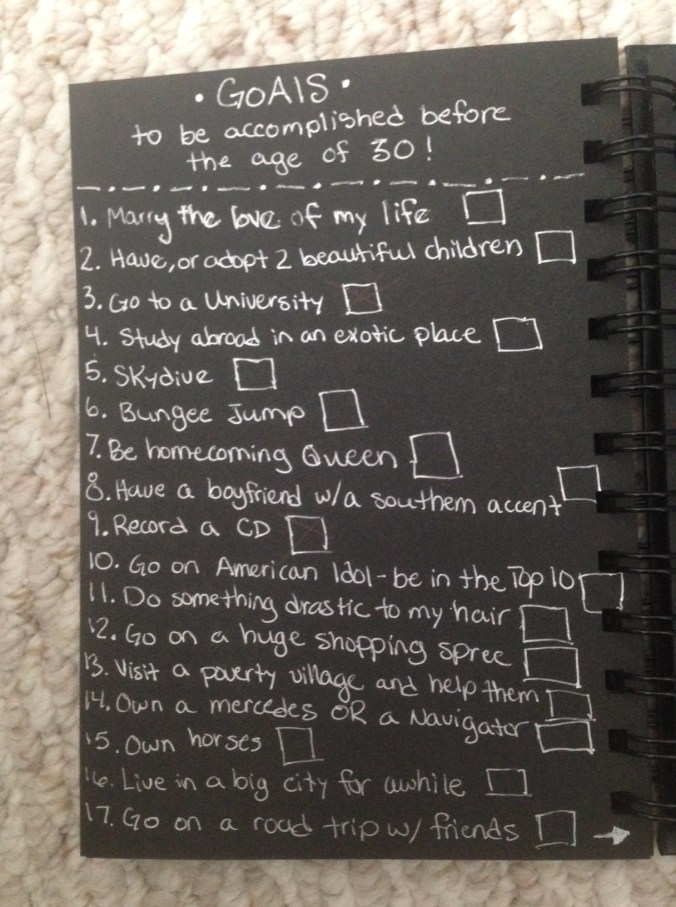 • GOALS •
to be accomplished before
the age of 30!
1. Marry the love of my life
2. Have, or adopt 2 beautiful children
3. Go to a University
4. Study abroad in an exotic place
5. SKydive
6. Bungee Jump
7. Be homecoming Queen
8. Have a boyfriend w/a southern accent
9. Record a CD
10. Go on American Idol - be in the Top 10
11. Do something drastic to my hair
12. Go on a huge shopping spree
13. Visit a poverty village and help them
14. Own a mercedes OR a Navigator
15. Own horses
16. Live in a big city for awhile
17. Go on a road trip w/ friends